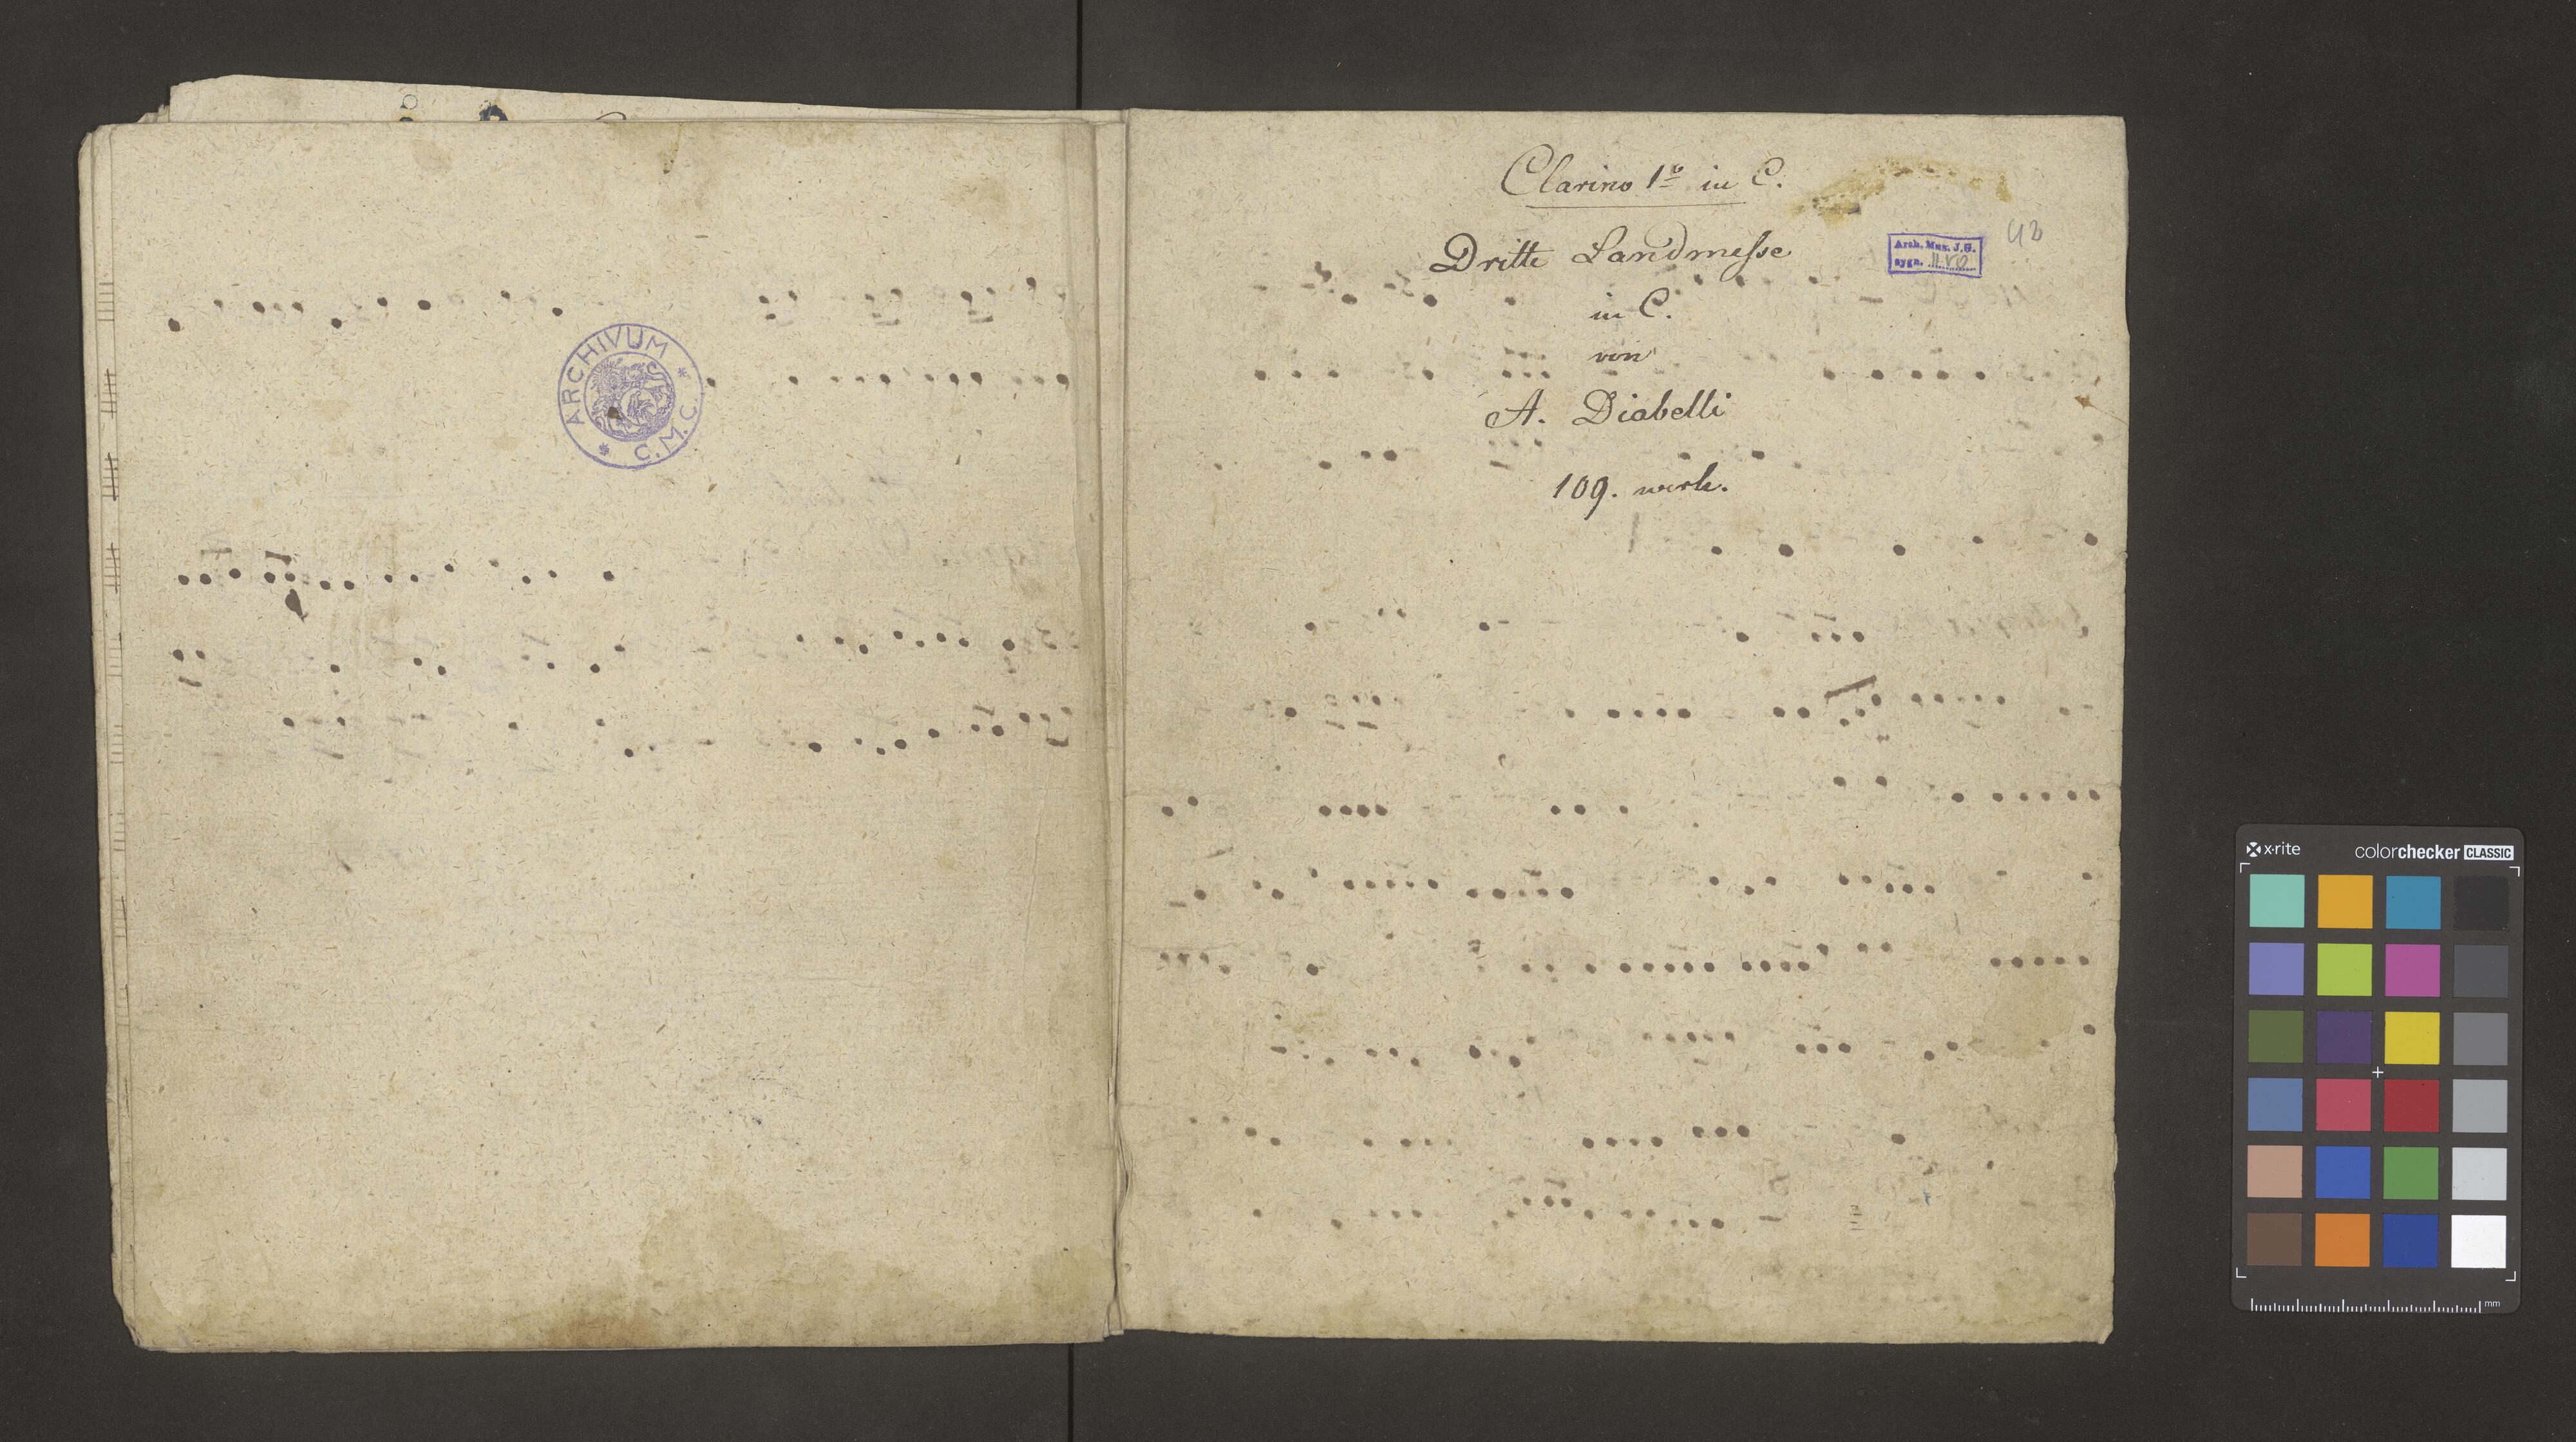 ARCHIVUM * C.M.C. *
Clarino 1º in C.
Dritte Landmeſse
in C.
von
A. Diabelli
109. werk.
Arch. Muz. J.G.
sygn.
42
x·rite colorchecker CLASSIC
mm